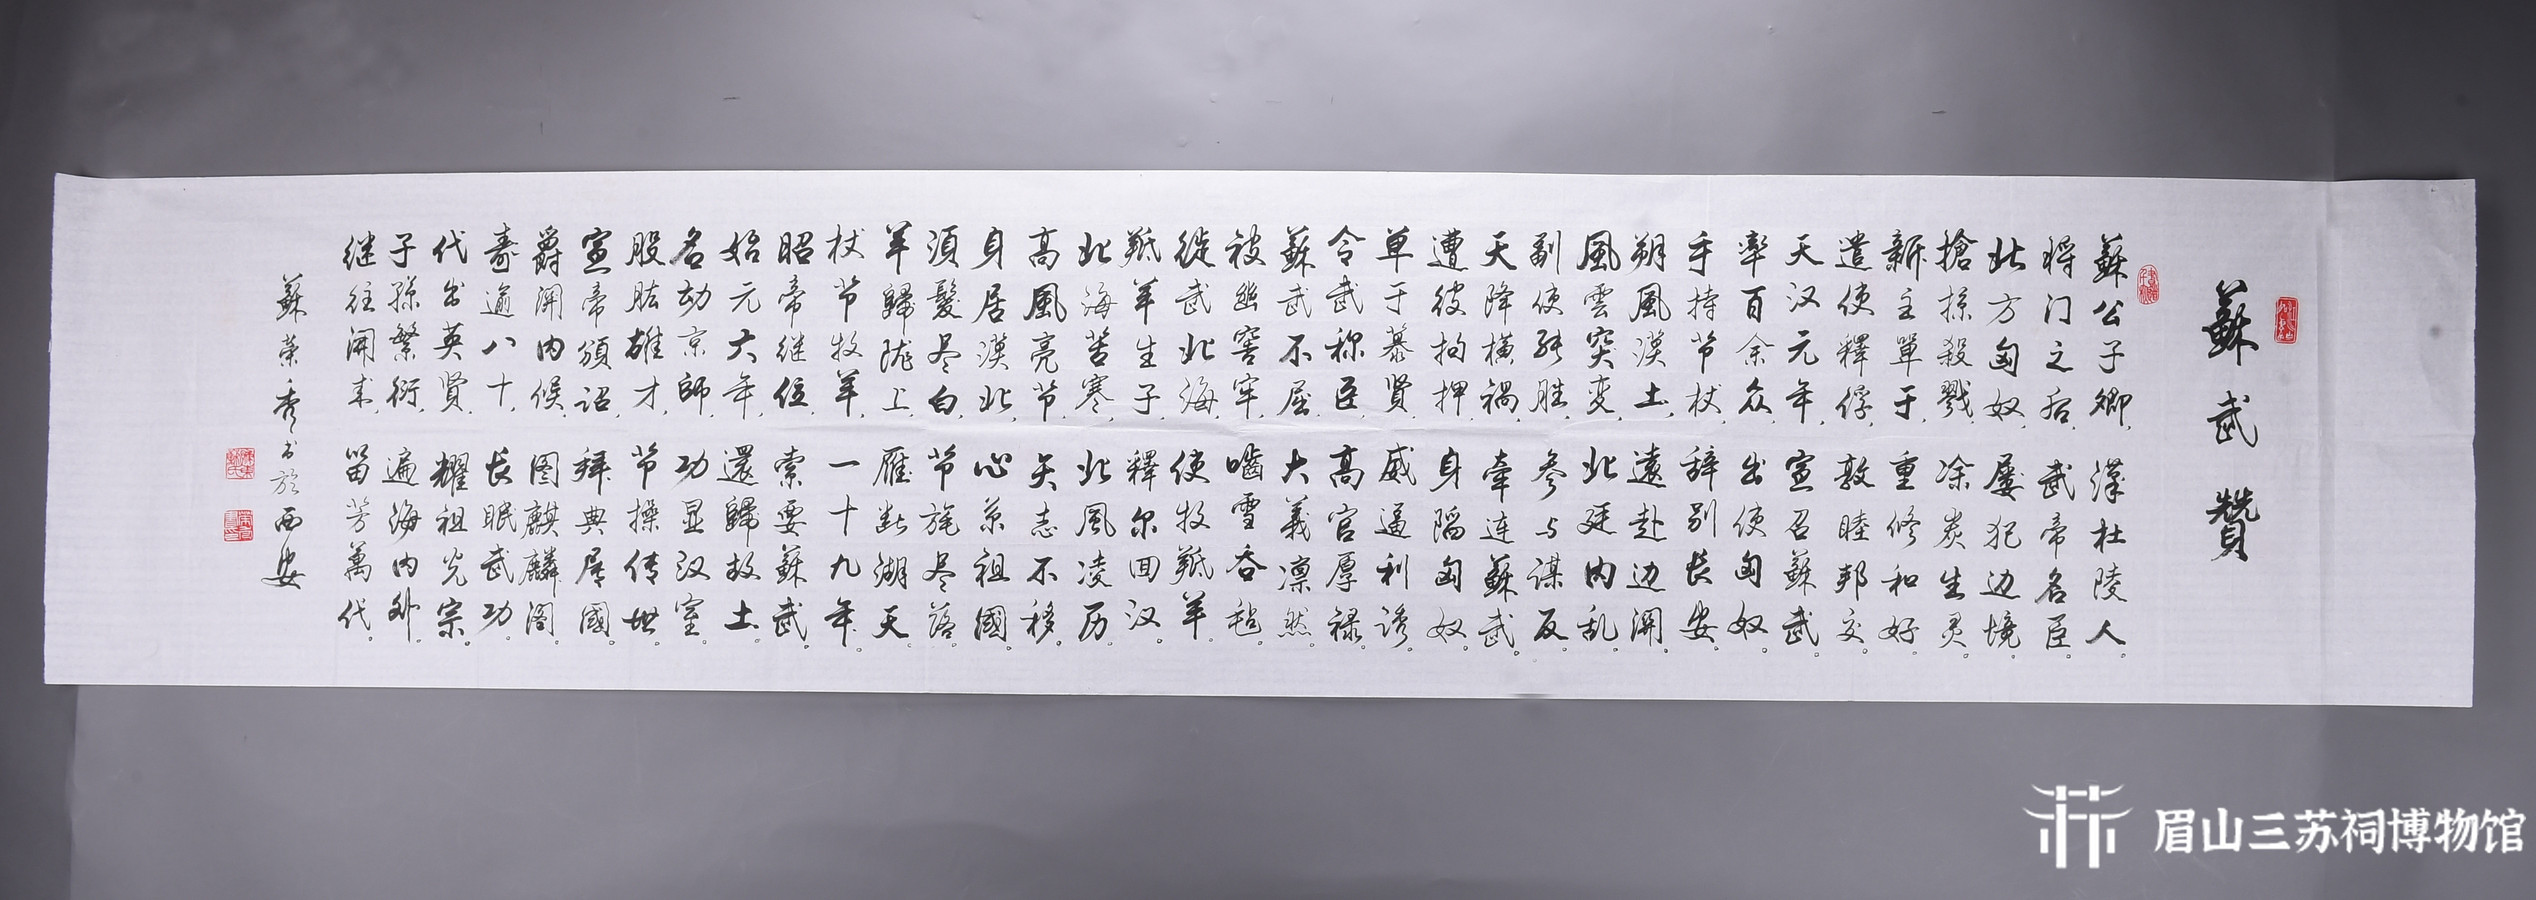 蘇武贊
蘇公子卿，漢杜陵人。
将门之后，武帝名臣。
北方匈奴，屡犯边境。
搶掠殺戮，涂炭生灵。
新主單于，重修和好。
遣使釋俘，敦睦邦交。
天汉元年，宣召蘇武。
率百余众，出使匈奴。
手持节杖，辞别长安。
朔風漠土，遠赴边関。
風雲突変，北廷内乱。
副使张胜，参与谋反。
天降横禍，牵连蘇武。
遭彼拘押，身陷匈奴。
单于慕贤，威逼利誘。
令武称臣，高官厚禄。
蘇武不屈，大義凛然。
被幽窖牢，嚙雪吞毡。
徙武北海，使牧羝羊。
羝羊生子，釋尔回汉。
北海苦寒，北風凌历。
高風亮节，矢志不移。
身居漠北，心系祖國。
須髮尽白，节旄尽落。
羊歸陇上，雁断湖天。
杖节牧羊，一十九年。
昭帝继位，索要蘇武。
始元六年，還歸故土。
名动京師，功显汉室。
股肱雄才，节操传世。
宣帝頒诏，拜典属國。
爵関内候，图麒麟阁。
寿逾八十，长眠武功。
代出英贤，耀祖光宗。
子孫繁衍，遍海内外。
继往開来，留芳萬代。
蘇荣秀书於西安
眉山三苏祠博物馆